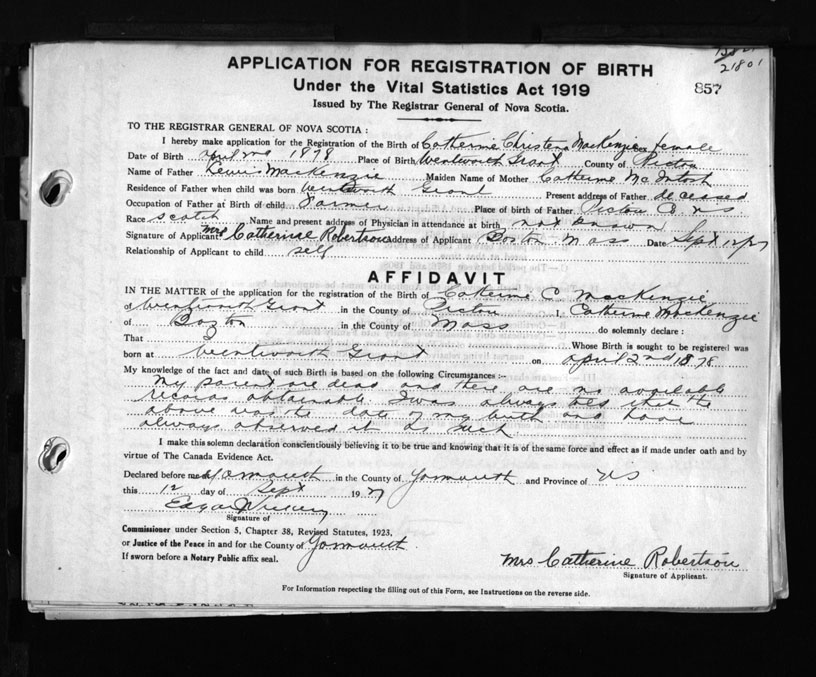 21801
APPLICATION FOR REGISTRATION OF BIRTH
Under the Vital Statistics Act 1919
857
Issued by The Registrar General of Nova Scotia.
TO THE REGISTRAR GENERAL OF NOVA SCOTIA :
I hereby make application for the Registration of the Birth of Catherine Christena MacKenzie female
Date of Birth April 2nd 1878 Place of Birth Wentworth Grant County of Pictou
Name of Father Lewis MacKenzie Maiden Name of Mother Catherine McIntosh
Residence of Father when child was born Wentworth Grant Present address of Father deceased
Occupation of Father at Birth of child Farmer Place of birth of Father Pictou Co NS
Race Scotch Name and present address of Physician in attendance at birth not known
Signature of Applicant Mrs Catherine Robertson address of Applicant Boston Mass Date Sept 12/27
Relationship of Applicant to child self
AFFIDAVIT
IN THE MATTER of the application for the registration of the Birth of Catherine C MacKenzie
of Wentworth Grant in the County of Pictou I, Catherine MacKenzie
of Boston in the County of Mass do solemnly declare :
That I Whose Birth is sought to be registered was
born at Wentworth Grant on April 2nd 1878
My knowledge of the fact and date of such Birth is based on the following Circumstances :-
My parent are dead and there are no available
records obtainable. I was always told that the
above was the date of my birth and have
always observed it as such
I make this solemn declaration conscientiously believing it to be true and knowing that it is of the same force and effect as if made under oath and by
virtue of The Canada Evidence Act.
Declared before me at Yarmouth in the County of Yarmouth and Province of NS
this 12 day of Sept 1927
Edgar
Signature of
Commissioner under Section 5, Chapter 38, Revised Statutes, 1923,
or Justice of the Peace in and for the County of Yarmouth.
If sworn before a Notary Public affix seal.
Mrs Catherine Robertson
Signature of Applicant.
For Information respecting the filling out of this Form, see Instructions on the reverse side.